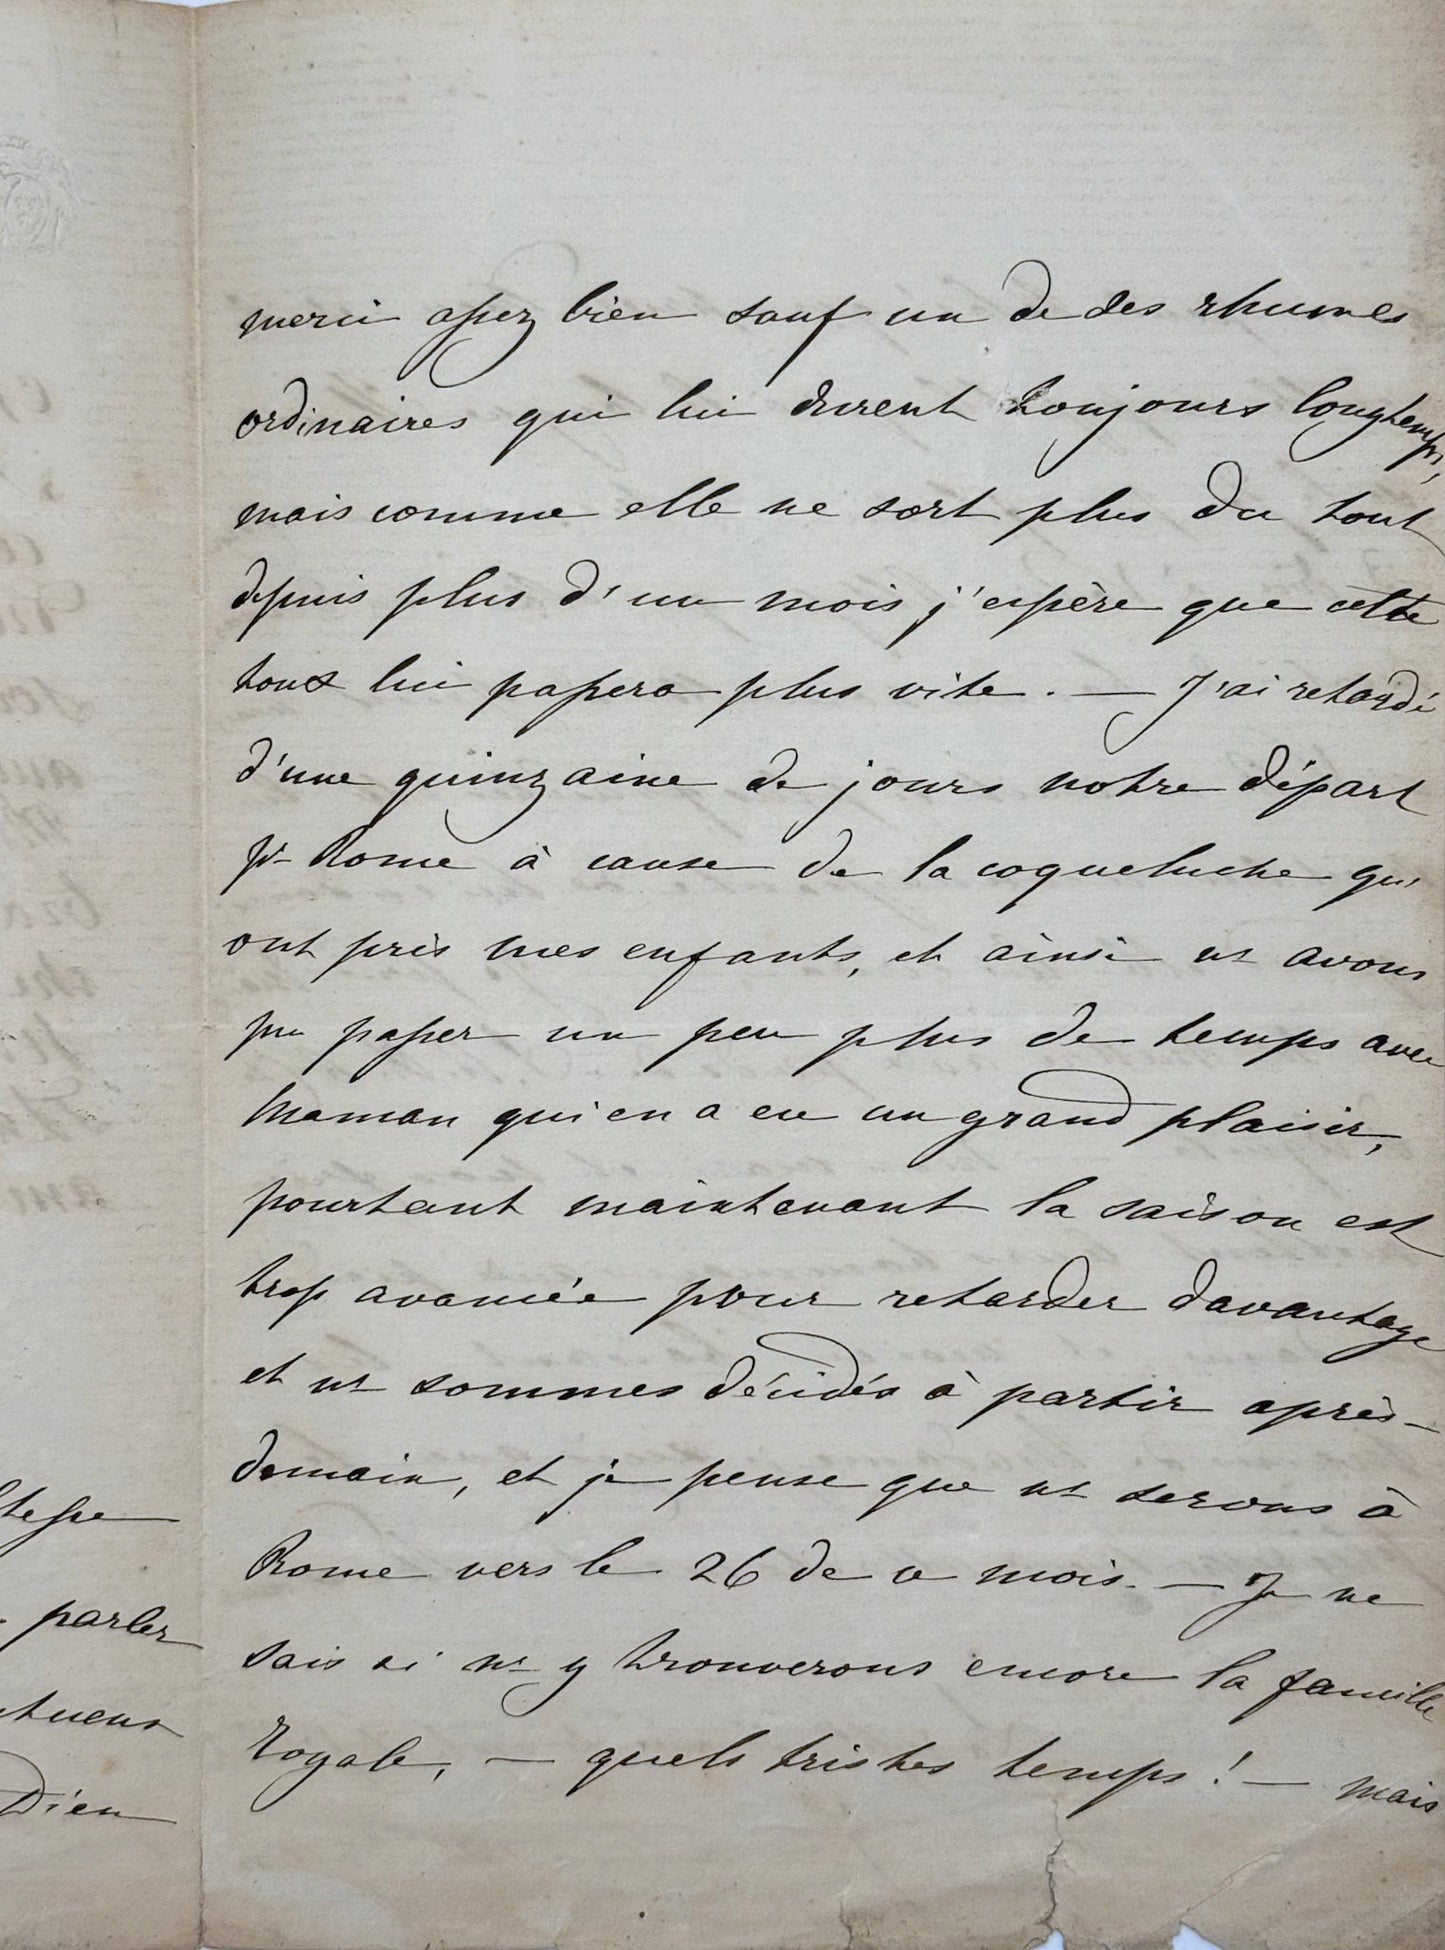 merci assez bien sauf un de ses rhumes
ordinaires qui lui durent toujours longtemps,
mais comme elle ne sort plus du tout
depuis plus d'un mois j'espère que cette
toux lui passera plus vite. — J'ai retardé
d'une quinzaine de jours notre départ
pr Rome à cause de la coqueluche qu'
ont pris mes enfants, et ainsi ns avons
pu passer un peu plus de temps avec
Maman qui en a eu un grand plaisir,
pourtant maintenant la saison est
trop avancée pour retarder davantage
et ns sommes décidés à partir après-
demain, et je pense que ns serons à
Rome vers le 26 de ce mois. — Je ne
sais si ns y trouverons encore la famille
Royale, — quels tristes temps ! — mais
tesse
parler
tueux
Dieu